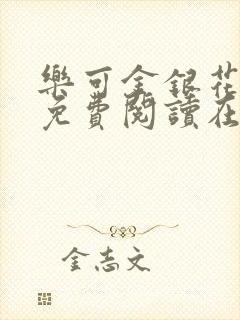 樂可金銀花
免費閱讀在
金志文